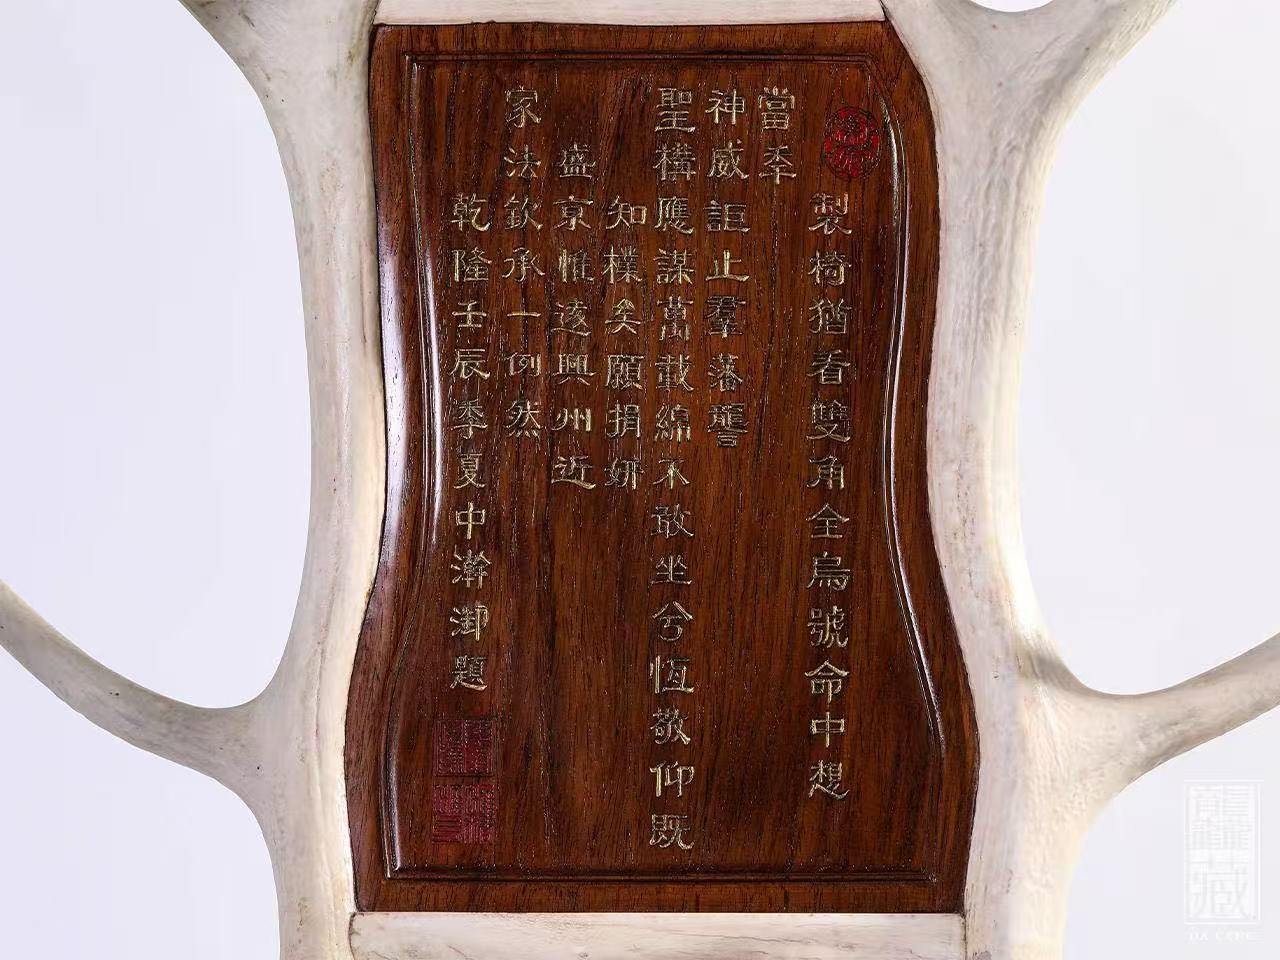 製椅猶看雙角全烏號命中想
當秊
神威詎止羣藩讋
聖構應謀萬載綿不敢坐兮恆敬仰既
知樸矣願捐妍
盛京惟遠興州近
家法欽承一例然
乾隆壬辰季夏中澣御題
藏